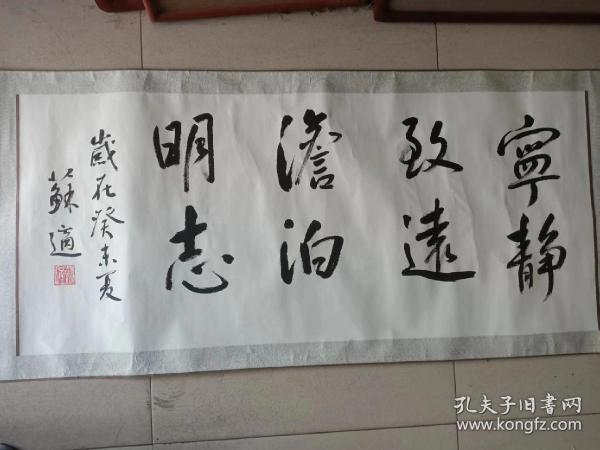 寧静
致遠
澹泊
明志
歲在癸未夏
蘇適
孔夫子旧書网
www.kongfz.com